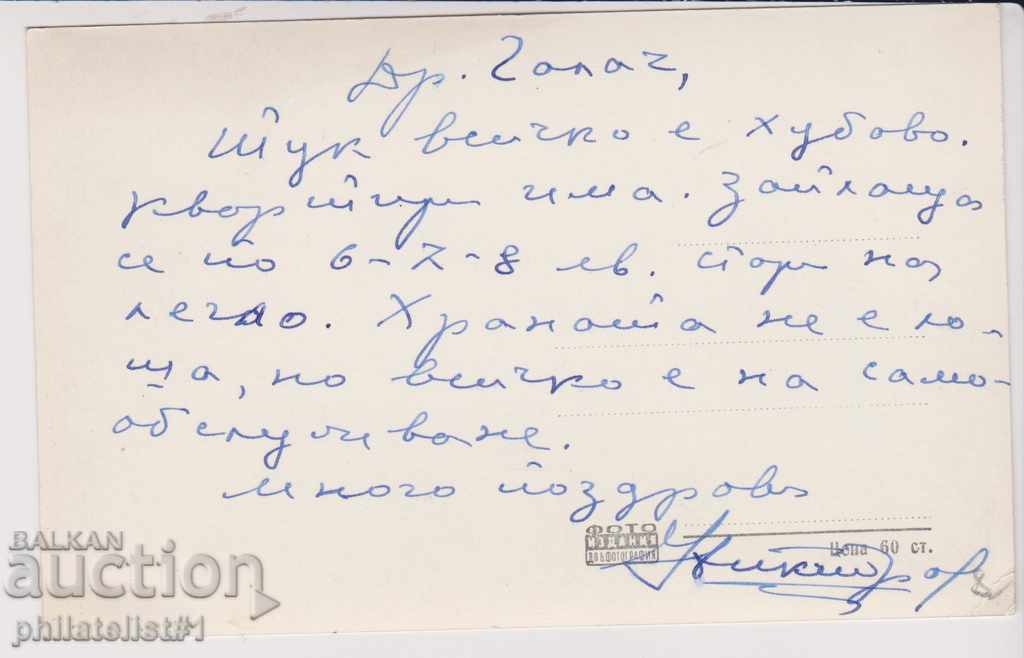 Др. Галач,
Тук всичко е хубово.
квартири има. Зайлаща
се по 6-7-8 лв. стари на
легло. Храната не е ло-
ша, но всичко е на само-
обслужване.
Много поздрави
ФОТО
ИЗДАНИЯ
ДЪ БФОТОГРАФИЯ
Цена 60 ст.
BALKAN
auction
philatelist#1